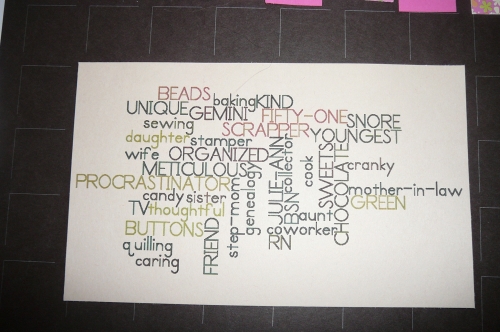 BEADS baking KIND
UNIQUE GEMINI FIFTY-ONE SNORE
sewing SCRAPPER YOUNGEST
daughter stamper
wife ORGANIZED
METICULOUS cranky
PROCRASTINATOR mother-in-law
candy sister GREEN
TV thoughtful
BUTTONS coworker aunt
quilling
caring
FRIEND
step-mom
genealogy
JULIE ANN
RN
BSN
collector
cook
SWEETS
CHOCOLATE